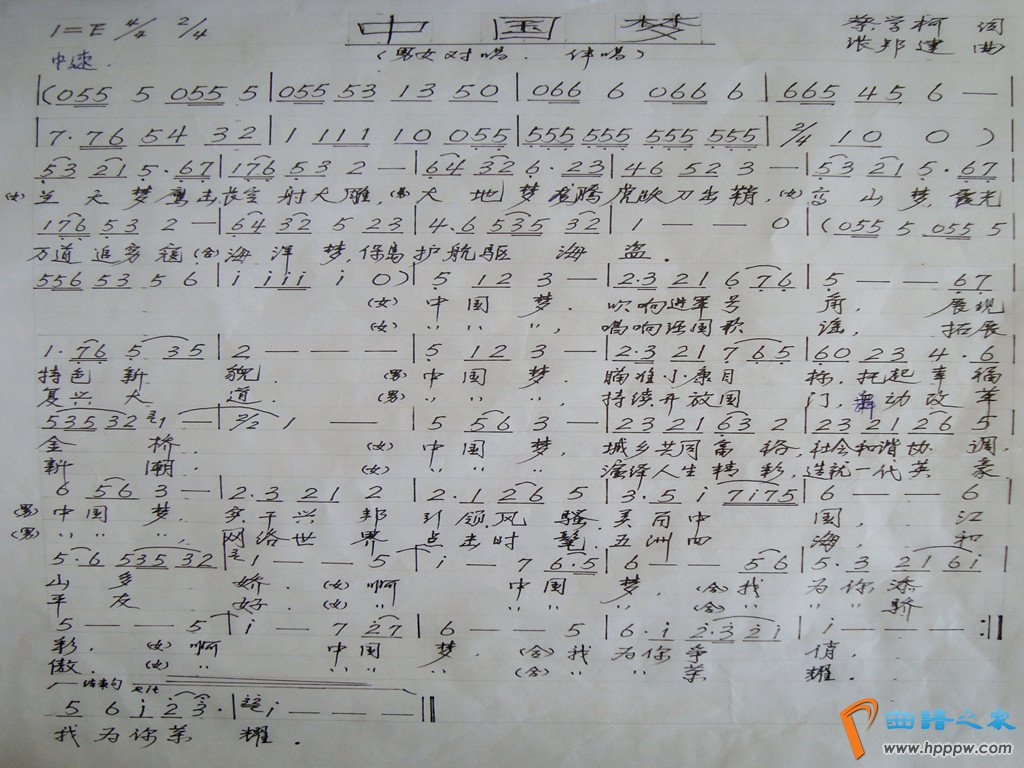 1=E 4/4 2/4 中国梦 蔡学柯 词
中速 (男女对唱.伴唱) 张邦建 曲
(055 5 055 5 | 055 53 13 50 | 066 6 066 6 | 665 45 6 — |
7·76 54 32 | 1 111 10 055 | 555 555 555 555 | 2/4 10 0 )
53 21 5·67 | 176 53 2 — | 64 32 6·23 | 46 523 — | 53 21 5·67
(女) 兰天梦鹰击长空射大雕,(男)大地梦龙腾虎跃刀出鞘,(女)高山梦,霞光
176 53 2 — | 64 32 5 23 | 4·6 535 32 | 1 — — 0 | (055 5 055 5
万道追穷寇,(合)海洋梦,保岛护航驱海盗.
556 53 5 6 | i iii i 0 ) | 5 12 3 — | 2·3 21 6 76 | 5 — — 67
(女) 中国梦, 吹响进军号角, 展现
(女) 〃 〃 〃, 唱响强国歌谣, 拓展
1·76 5 35 | 2 — — — | 5 12 3 — | 2·3 21 7 65 | 60 23 4·6
特色新貌. (男) 中国梦, 瞄准小康目标,托起幸福
复兴大道. (男) 〃 〃 〃, 持续开放国门,舞动改革
535 32 1 — | 2/2 1 — — | 5 56 3 — | 23 21 63 2 | 23 21 26 5
金桥. (女) 中国梦, 城乡共同富裕,社会和谐协调,
新潮. (女) 〃 〃 〃, 演绎人生精彩,造就一代英豪
6 56 3 — | 2·3 21 2 | 2·1 26 5 | 3·5 i 7i75 | 6 — — 6
(男) 中国梦, 实干兴邦引领风骚,美百中国, 江
(男) 〃 〃 〃, 网络世界点击时髦,五洲四海, 和
5·6 535 32 | 1 — — 5 | i — 7 6·5 | 6 — — 56 | 5·3 21 6i
山多娇. (女) 啊 中国梦, (合)我为你添
平友好. (女) 〃 〃 〃 〃, (合)〃 〃 〃 骄
5 — — 5 | i — 7 27 | 6 — — 5 | 6·i 2·3 2i | i — — — :||
彩, (女) 啊 中国梦, (合)我为你争俏.
傲. (女) 〃 〃 〃 〃 (合)〃 〃 〃 荣耀.
结束句
5 6 i 2 3· | i — — — ||
我为你荣耀.
曲谱之家
www.hpppw.com